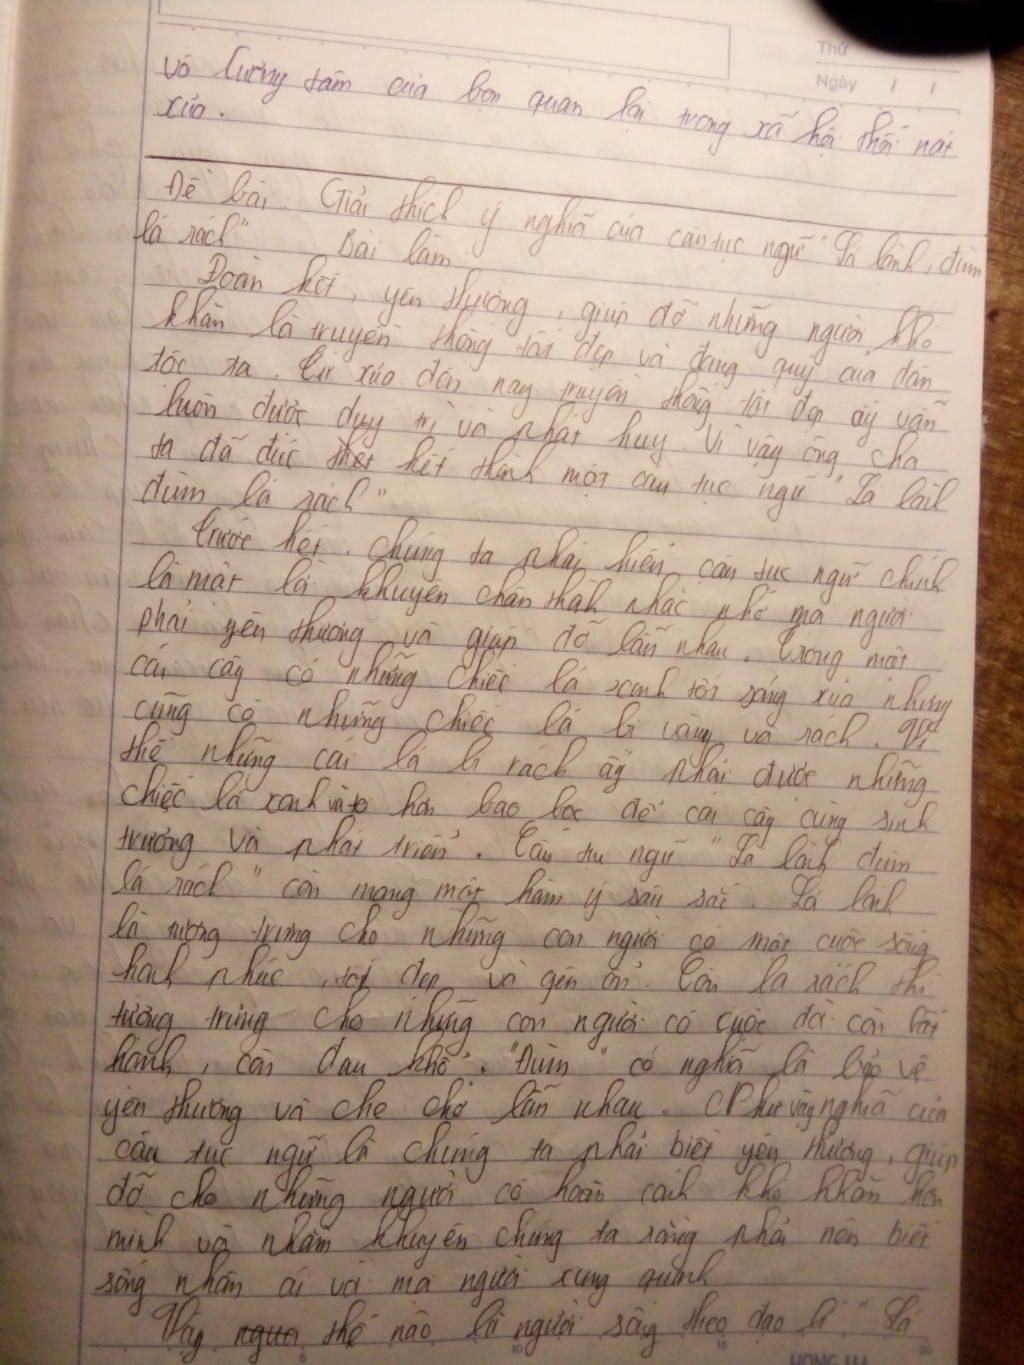 Thứ
Ngày / /
vô lương tâm của bọn quan lại trong xã hội thối nát
xưa.
Đề bài: Giải thích ý nghĩa của câu tục ngữ "Lá lành, đùm
lá rách"
Bài làm
Đoàn kết, yêu thương, giúp đỡ những người khó
khăn là truyền thống tốt đẹp và đáng quý của dân
tộc ta. Từ xưa đến nay truyền thống tốt đẹp ấy vẫn
luôn được duy trì và phát huy. Vì vậy ông cha
ta đã đúc kết thành một câu tục ngữ "Lá lành
đùm lá rách"
Trước hết. chúng ta phải hiểu câu tục ngữ chính
là một lời khuyên chân thành nhắc nhở mọi người
phải yêu thương và giúp đỡ lẫn nhau. Trong một
cái cây có những chiếc lá xanh tốt sáng xủa nhưng
cũng có những chiếc lá bị vàng và rách. Vì
thế những cái lá bị rách ấy phải được những
chiếc lá xanh và to hơn bao bọc để cái cây cùng sinh
trưởng và phát triển. Câu tụ ngữ "Lá lành đùm
lá rách" còn mang một hàm ý sâu sắc. Lá lành
là tượng trưng cho những con người có một cuộc sống
hạnh phúc, tốt đẹp và yên ổn. Còn lá rách thì
tượng trưng cho những con người có cuộc đời còn bất
hạnh, còn đau khổ. "Đùm" có nghĩa là bảo vệ
yêu thương và che chở lẫn nhau. Như vậy nghĩa của
câu tục ngữ là chúng ta phải biết yêu thương, giúp
đỡ cho những người có hoàn cảnh khó khăn hơn
mình và nhằm khuyên chúng ta rằng phải nên biết
sống nhân ái với mọi người xung quanh
Vậy thế nào là người sống theo đạo lí "Lá